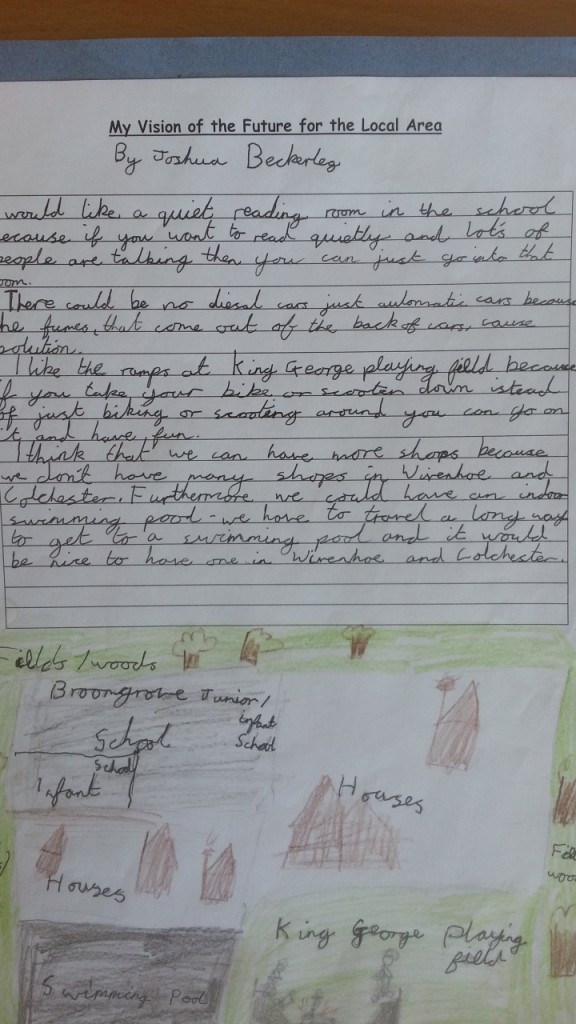 My Vision of the Future for the Local Area
By Joshua Beckerley
would like, a quiet, reading, room in the school
ecause if you want to read quietly and lot's of
eople are talking then you can just go into that
oom.
There could be no diesal cars just automatic cars because
he fumes, that come out of the back of cars, cause
polution.
I like the ramps at King George playing field because
if you take your bike or scooter down istead
of just biking or scooting around you can go on
it and have fun.
I think that we can have more shops because
we don't have many shops in Wivenhoe and
Colchester. Furthermore we could have an indoor
swimming pool - we have to travel a long way
to get to a swimming pool and it would
be nice to have one in Wivenhoe and Colchester.
Fields/woods
Broomgrove Junior/
infant
School
School
School
Infant
Houses
Houses
King George playing
field
Swimming Pool